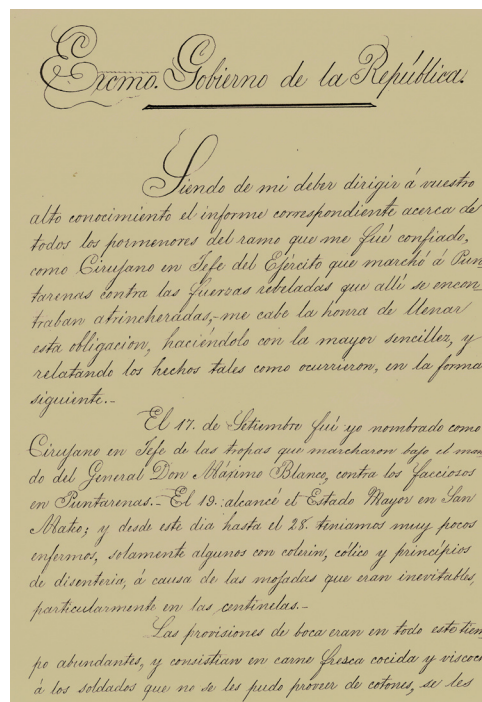 Excmo. Gobierno de la República.
Siendo de mi deber dirigir á vuestro
alto conocimiento el informe correspondiente acerca de
todos los pormenores del ramo que me fué confiado,
como Cirujano en Jefe del Ejército que marchó á Pun-
tarenas contra las fuerzas rebeladas que allí se encon
traban atrincheradas,- me cabe la honra de llenar
esta obligacion, haciéndolo con la mayor sencillez, y
relatando los hechos tales como ocurrieron, en la forma
siguiente.-
El 17. de Setiembre fué yo nombrado como
Cirujano en Jefe de las tropas que marcharon bajo el man
do del General Don Máximo Blanco, contra los facciozos
en Puntarenas.- El 19. alcancé el Estado Mayor en San
Mateo; y desde este dia hásta el 28. teniamos muy pocos
enfermos, solamente algunos con colerin, cólico y princípios
de disenteria, á causa de las mojadas que eran inevitables,
particularmente en las centinelas.-
Las provisiones de boca eran en todo este tiem
po abundantes, y consistian en carne fresca cocida y viscoco
á los soldados que no se les pudo proveer de cotones, se les